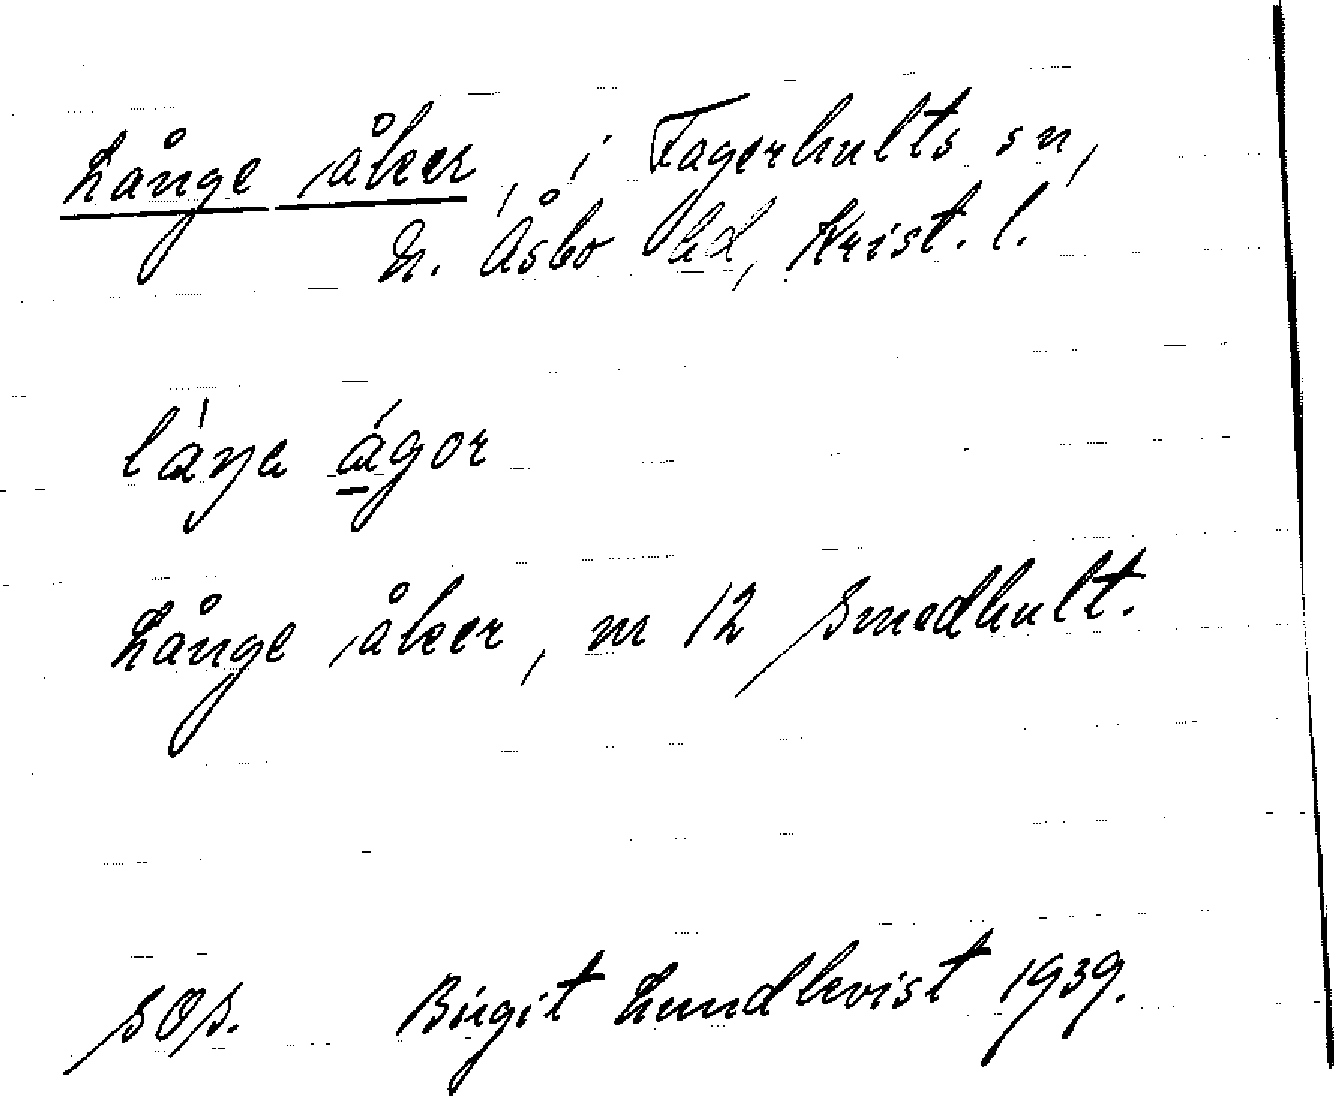 Långe åker, i Fagerhults sn,
N. Åsbo hd, Krist. l.
láŋa ágor
Långe åker, m 12 Smedhult.
SOS. Birgit Lundkvist 1939.